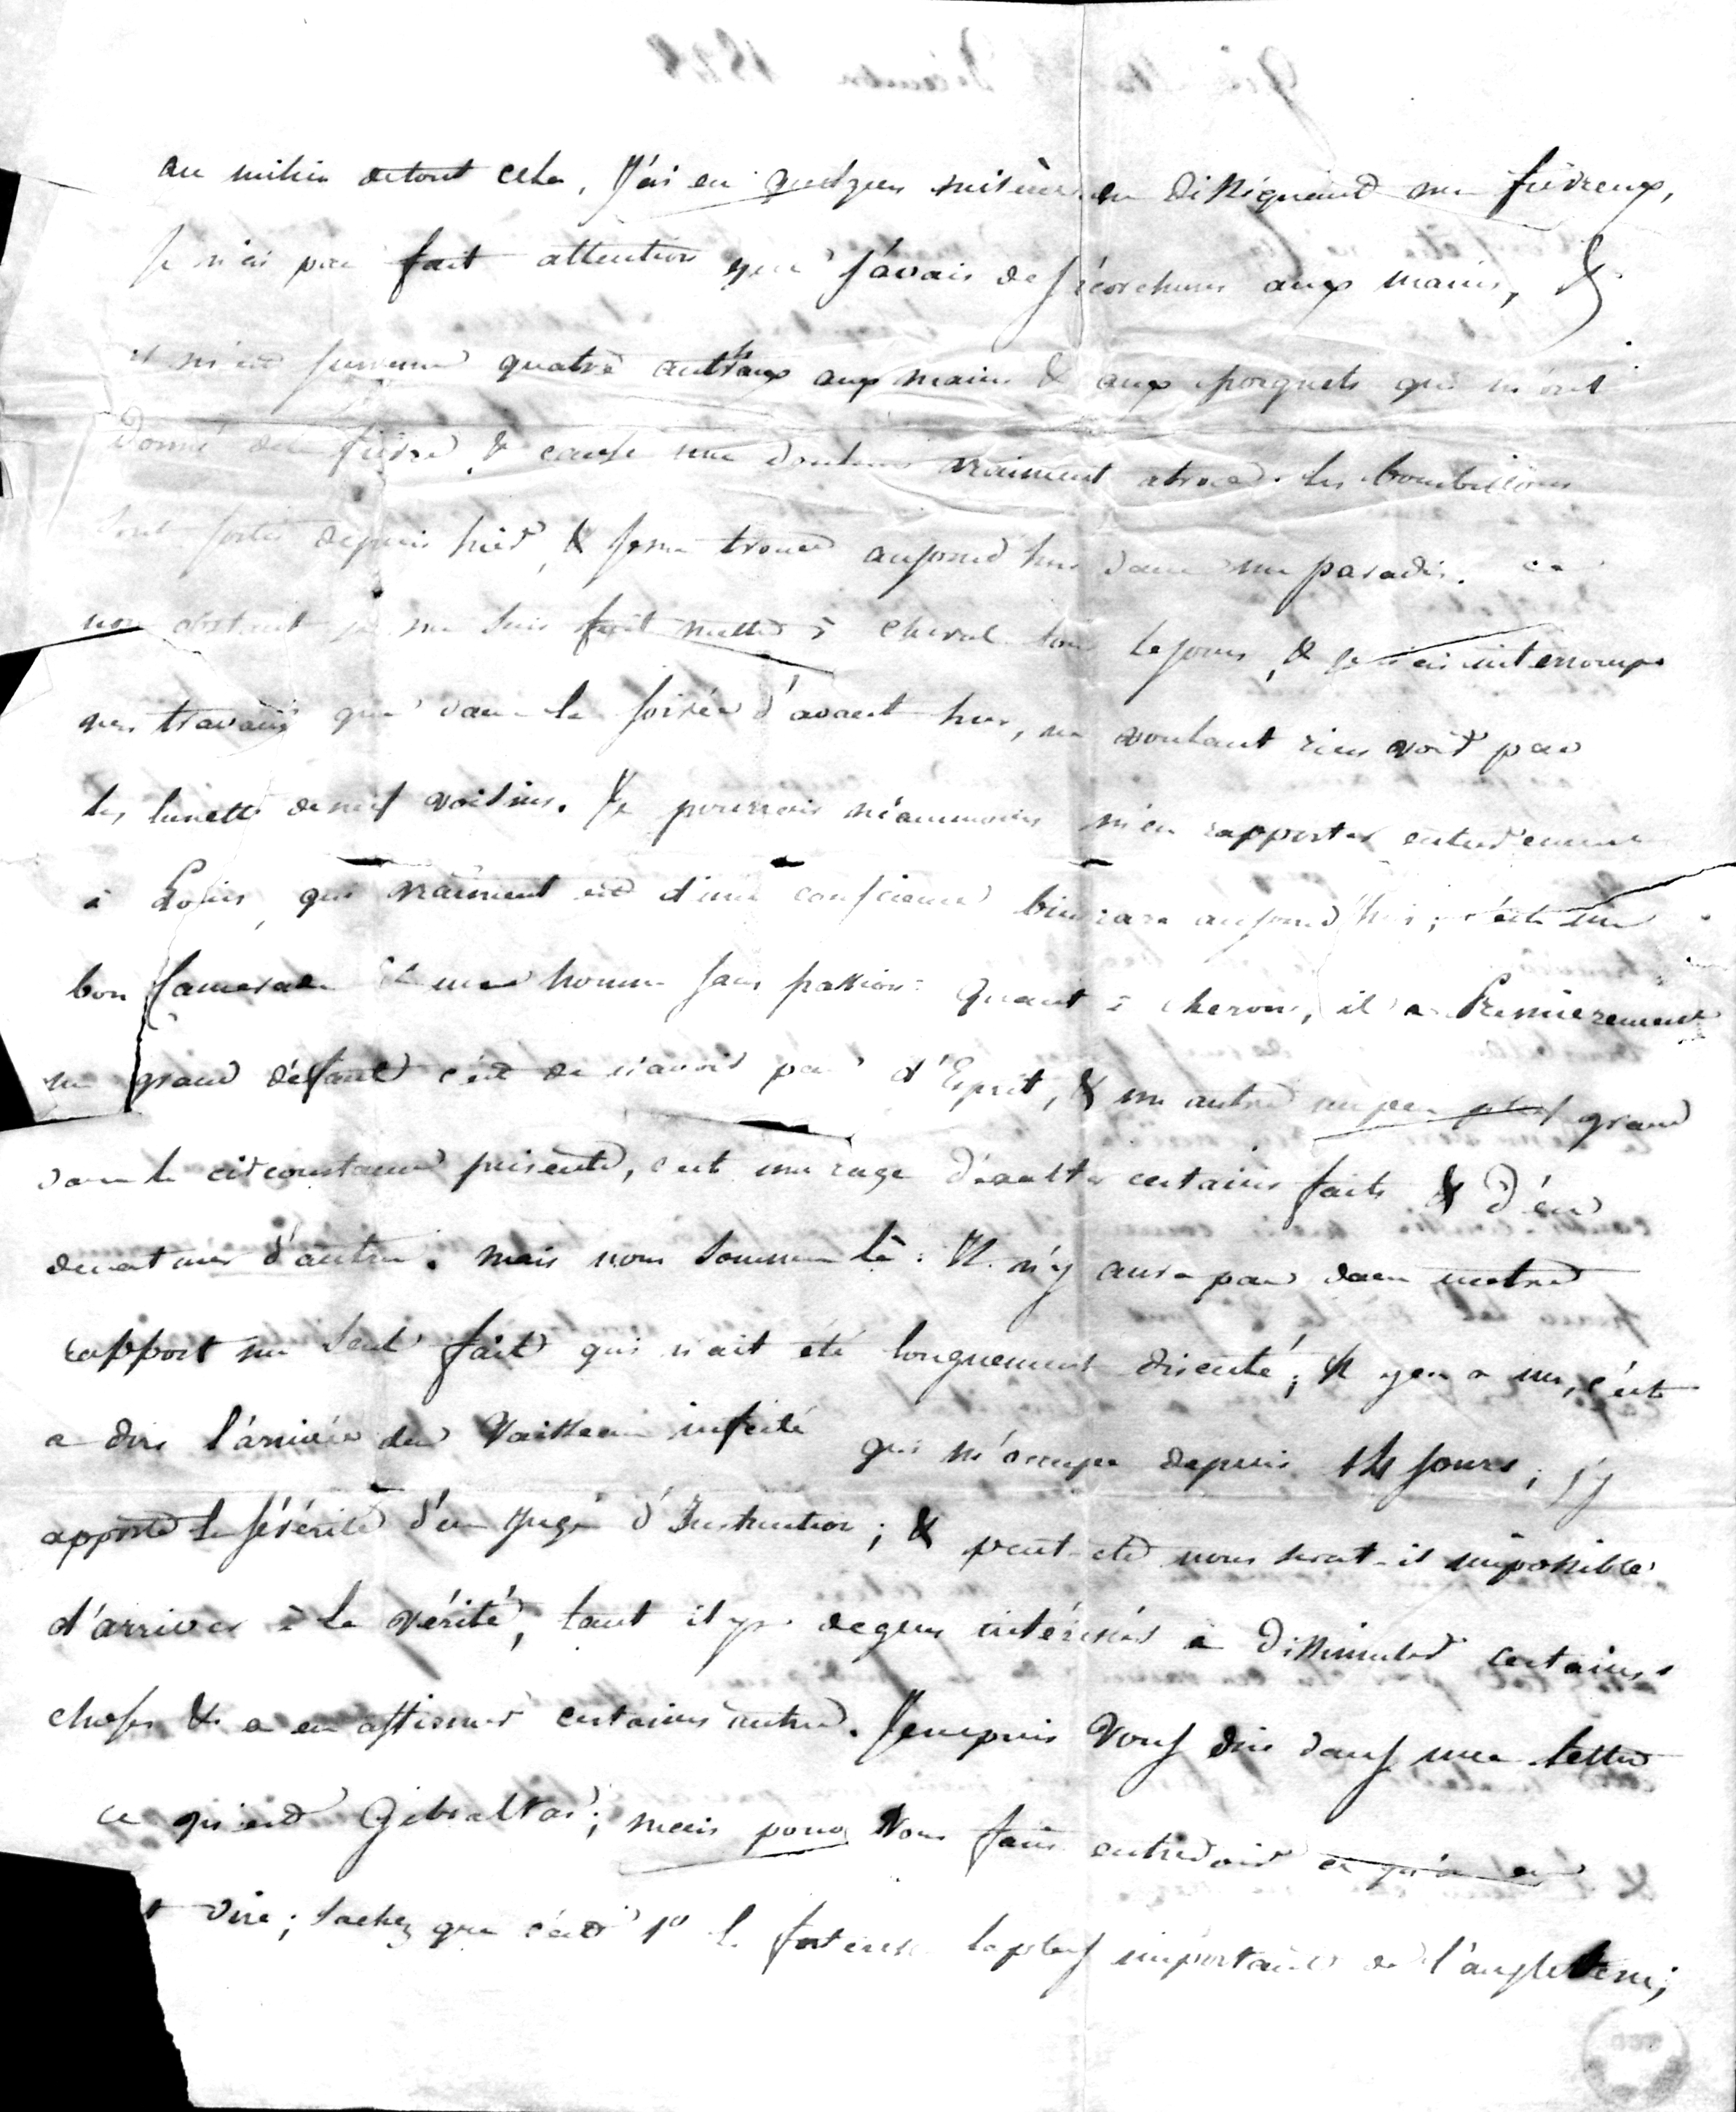 au milieu detout cela, J'ai eu quelques misères. en dissiquand un fiévreux,
Je n'ai pas fait attention que J'avais des écorchures aux mains, &
il m'est survenu quatre anthrax aux mains & aux poignets qui m'ont
donné de la fièvre & causé une douleur vraiment atroce. les bourbillons
sont sortis depuis hier, & Je me trouve aujourd'hui dans un paradis. ce
non obstant je me suis fait mettre à cheval tous les jours, & je n'ai interrompu
mes travaux que dans la soirée d'avant hier, ne voulant rien voir par
les lunettes de mes voisins. Je pourrois néanmoins m'en rapporter entièrement
à Louis, qui vraiment est d'une conscience bien rare aujourd'hui; c'est un
bon Camarade & un homme sans passion. Quant à Chervin, il a Premierement
un grand défaut c'est de n'avoir pas d'Esprit, & un autre un peu plus grand
dans la circonstance présente, c'est une rage d'exalter certains faits & d'en
dénaturer d'autres. mais nous sommes là. Il n'y aura pas dans notre
rapport un seul fait qui n'ait été longuement discuté; Il y en a un, c'est
a dire l'arrivée du Vaisseau infecté qui m'occupe depuis 14 jours; j'y
apporte la sévérité d'un Juge d'Instruction; & peut-etre nous serat-il impossible
d'arriver à la vérité, tant il y a de gens intéressés à dissimuler certaines
choses & a en affirmer certaines autres. Je ne puis Vous dire dans une lettre
ce qu'est Gibraltar; mais pour Vous faire entrevoir ce qu'on en
dire; sachez que c'est 1º la forteresse la plus importante de l'angleterre;